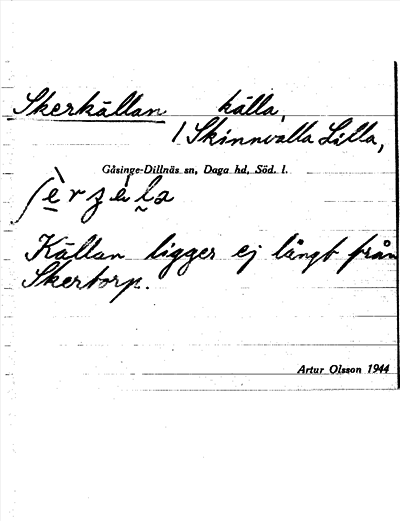 Skerkällan källa,
/ Skinnvalla Lilla,
Gåsinge-Dillnäs sn, Daga hd, Söd. l.
Källan ligger ej långt från
Skertorp.
Artur Olsson 1944